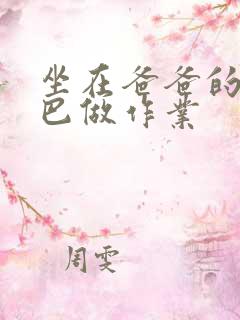 坐在爸爸的
巴做作业
周雯